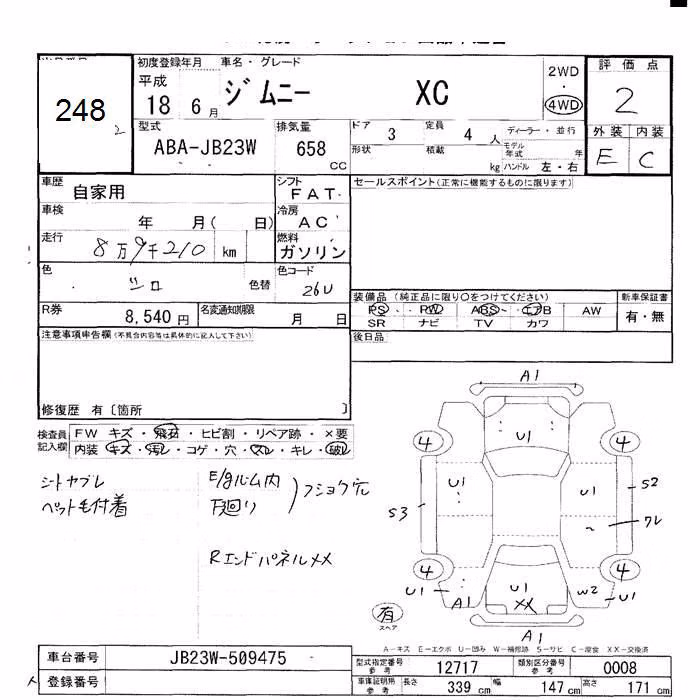 248
2
初度登録年月
平成
18 6月
車名・グレード
ジムニー XC
2WD
・
4WD
評価点
2
外装 内装
E C
型式
ABA-JB23W
排気量
658
CC
ドア 3 定員 4 人
形状 積載 kg
ディーラー・並行
モデル年式 年
ハンドル 左・右
車歴
自家用
シフト
FAT
セールスポイント(正常に機能するものに限ります)
車検
年 月( 日)
冷房
AC
走行
8万9千210 km
燃料
ガソリン
色
シロ
色替
色コード
26U
装備品(純正品に限り○をつけてください)
PS・ PW ABS・エアB AW
SR ナビ TV カワ
新車保証書
有・無
R券
8,540円
名変通知期限
月 日
後日品
注意事項申告欄(不具合内容等は具体的に記入して下さい)
修復歴 有〔箇所 〕
検査員記入欄
FW キズ・飛石・ヒビ割・リペア跡・×要
内装・キズ・汚レ・コゲ・穴・スレ・キレ・破レ
シートヤブレ
ペット毛付着
E/gルーム内
下廻り
フショク穴
Rエンドパネルメメ
A1
4 U1 4
U1 U1 S2
S3 ワレ
4 4
U1 A1 U1 XX W2 U1
A1
有
スペア
A-キズ E-エクボ U-凹み W-補修跡 S-サビ C-腐食 XX-交換済
車台番号 JB23W-509475
登録番号
型式指定番号
参考
12717
類別区分番号
参考
0008
車庫証明用
参考
長さ 339 cm 幅 147 cm 高さ 171 cm